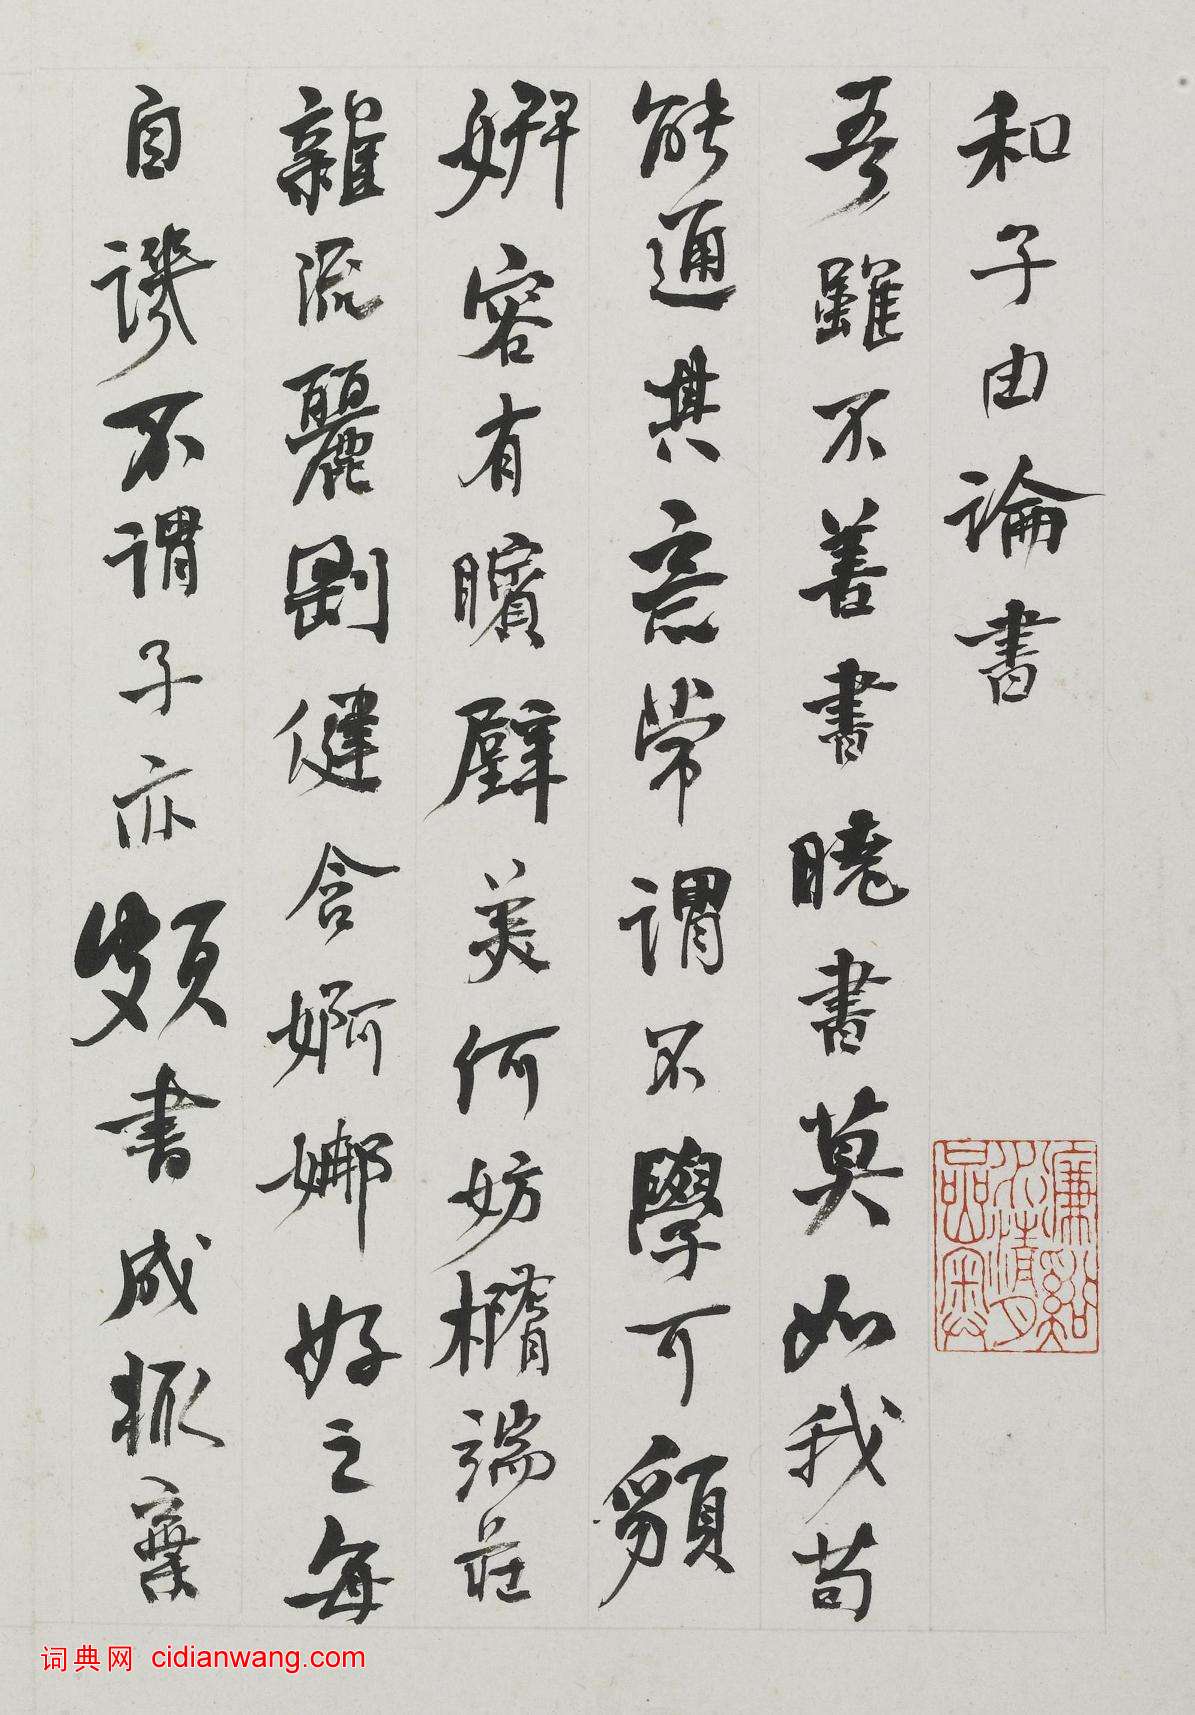 和子由論書
吾雖不善書曉書莫如我苟
能通其意常謂不學可䫉
妍容有矉璧美何妨橢端莊
雜流麗剛健含婀娜好之每
自譏不謂子亦頗書成輒棄
词典网 cidianwang.com